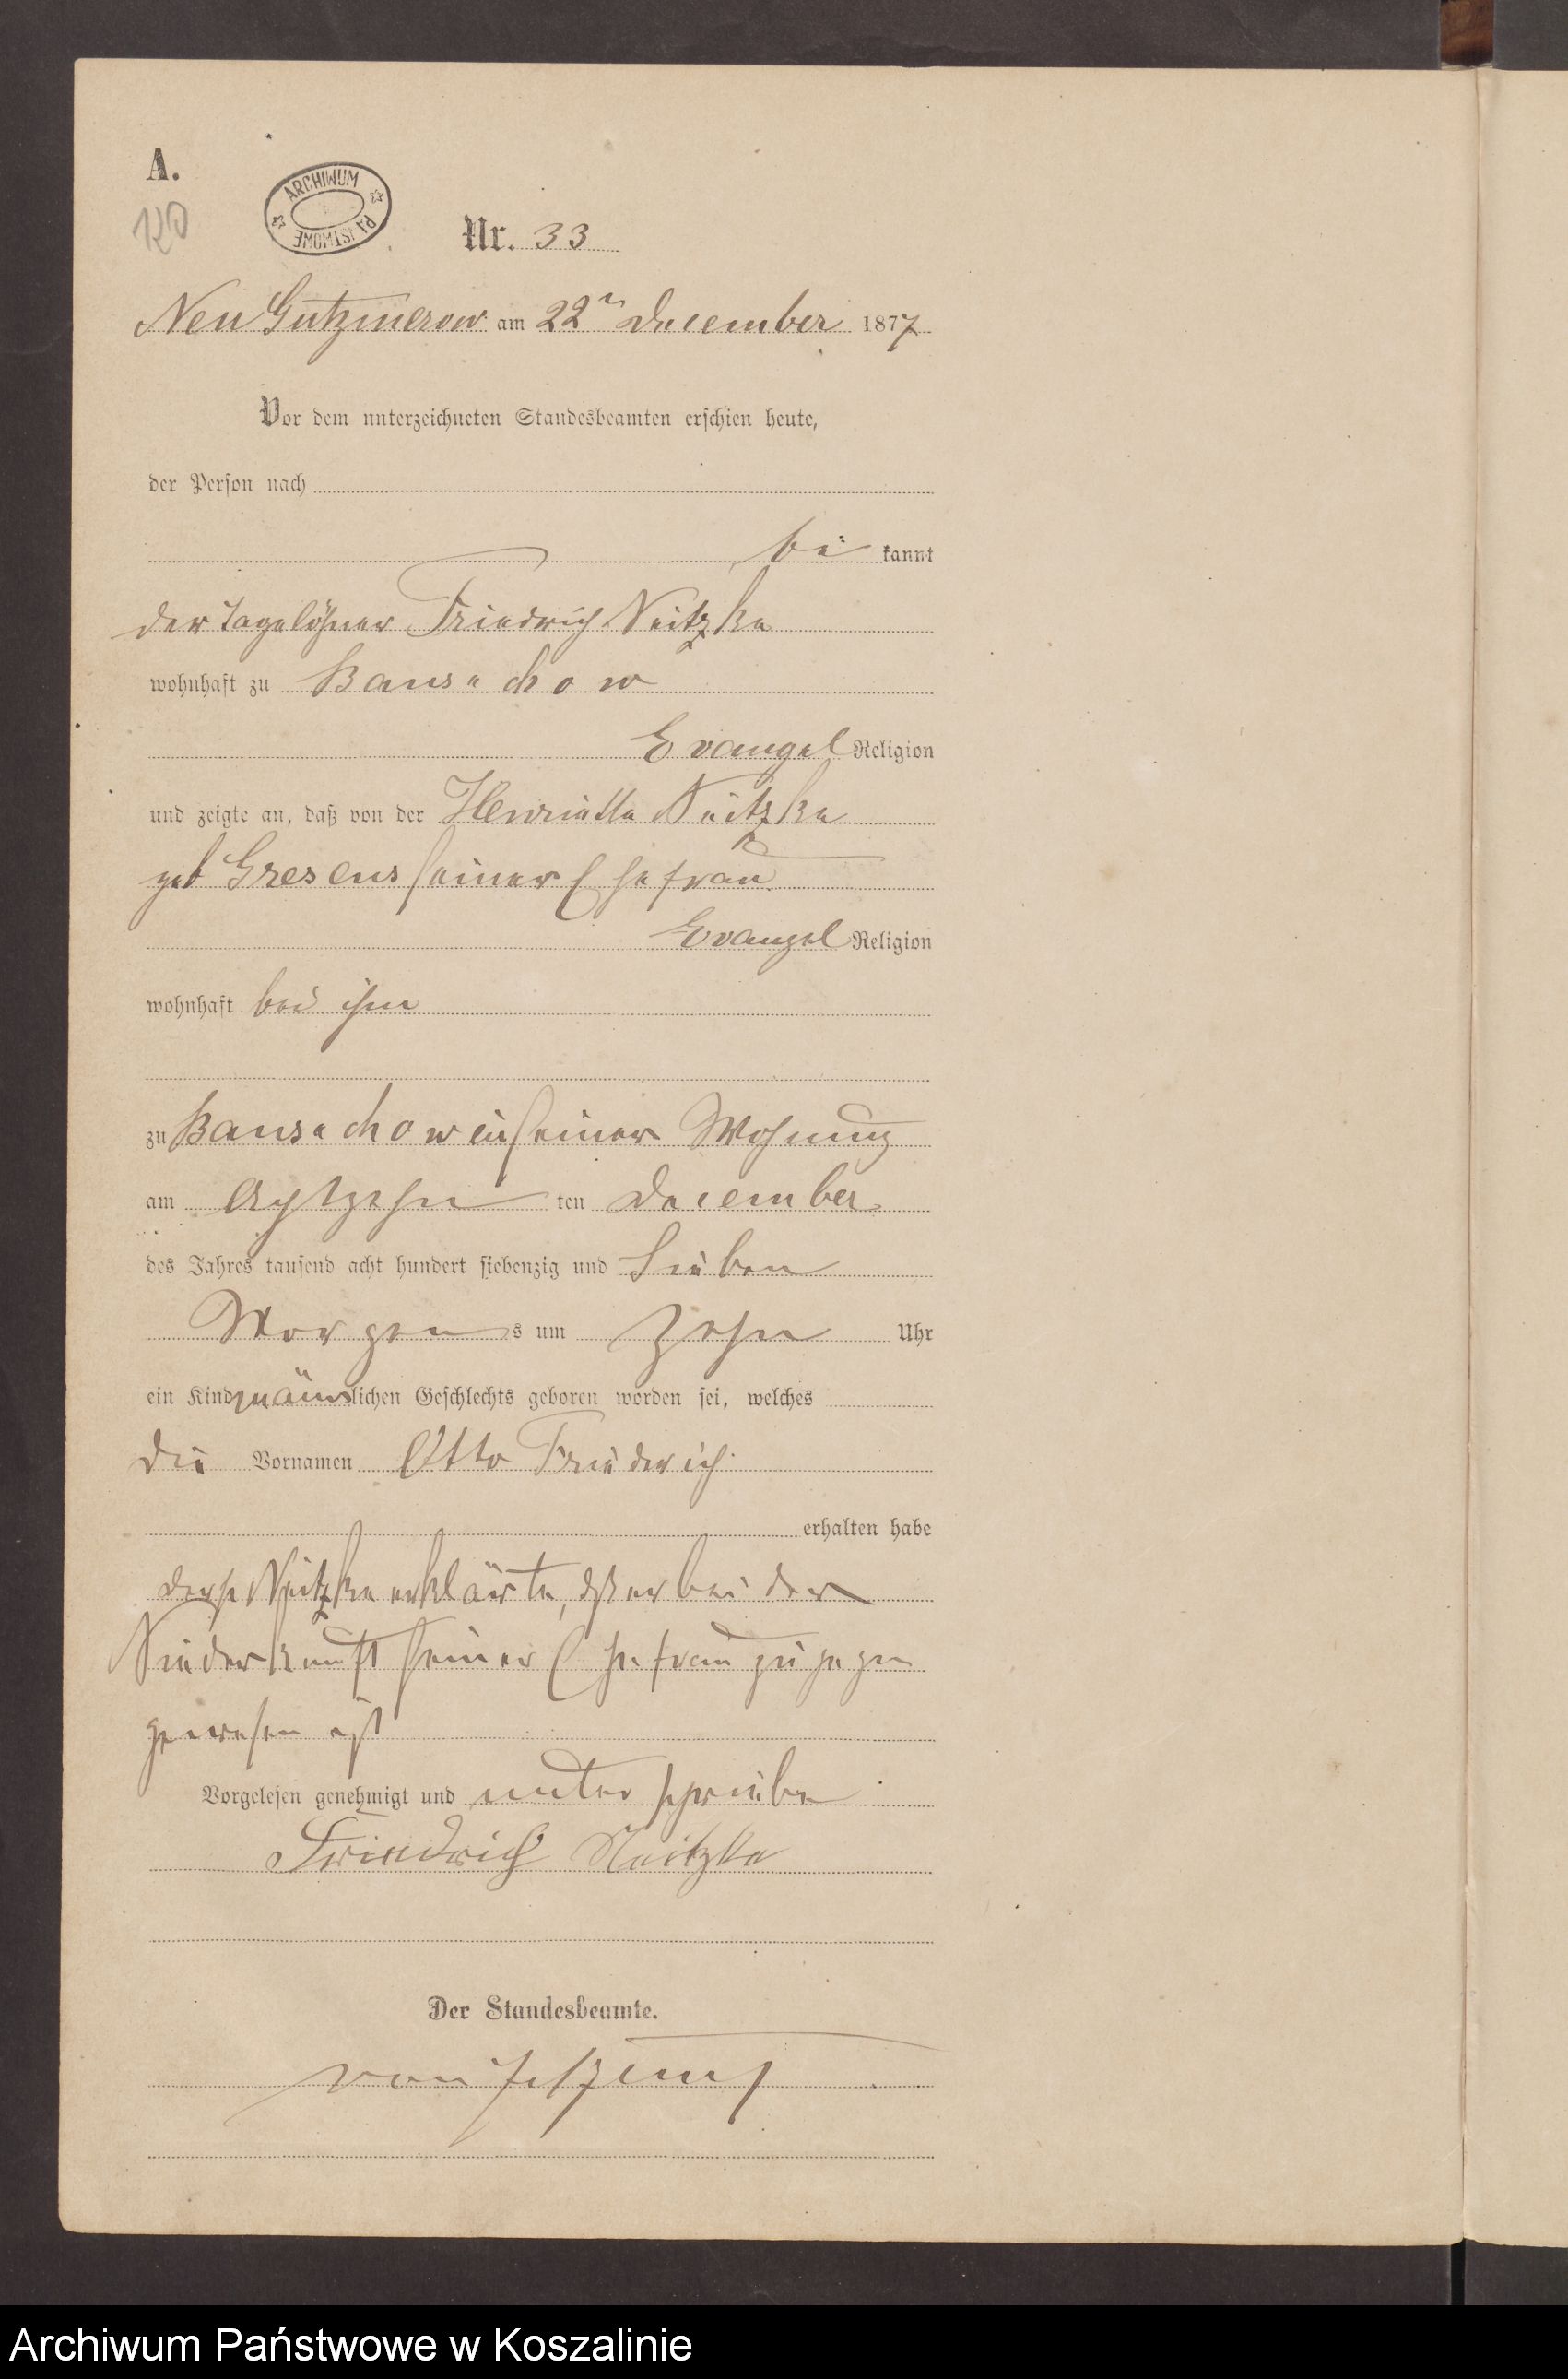 A.
120
ARCHIWUM PAŃSTWOWE
Nr. 33
Neu Gutzmerow am 22n December 1877
Vor dem unterzeichneten Standesbeamten erschien heute,
der Person nach
be kannt
der Tagelöhner Friedrich Neitzke
wohnhaft zu Bansechow
Evangel Religion
und zeigte an, daß von der Henriette Neitzke
geb Gresens seiner Ehefrau
Evangel Religion
wohnhaft bei ihm
zu Bansechow in seiner Wohnung
am Achtzehn ten December
des Jahres tausend acht hundert siebenzig und Sieben
Morgen s um Zehn Uhr
ein Kind männlichen Geschlechts geboren worden sei, welches
die Vornamen Otto Friederich
erhalten habe
Neitzke erklärte, er bei der
Niederkunft seiner Ehefrau zugegen
gewesen ist
Vorgelesen genehmigt und unterschrieben
Friedrich Neitzke
Der Standesbeamte.
von
Archiwum Państwowe w Koszalinie